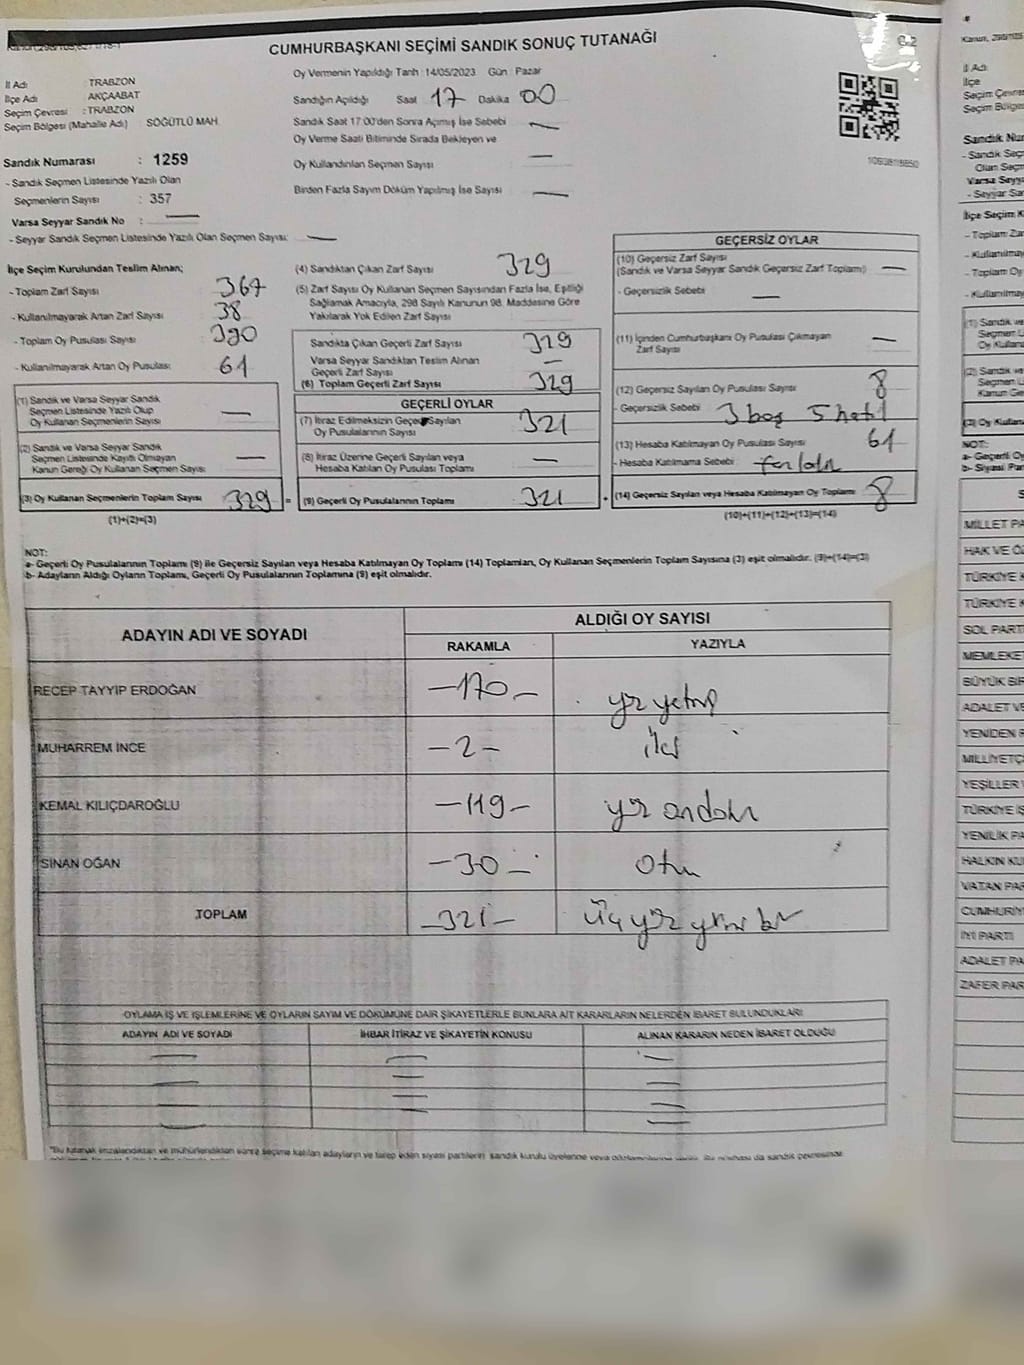 CUMHURBAŞKANI SEÇİMİ SANDIK SONUÇ TUTANAĞI
İl Adı : TRABZON
İlçe Adı : AKÇAABAT
Seçim Çevresi : TRABZON
Seçim Bölgesi (Mahalle Adı) SÖĞÜTLÜ MAH.
Sandık Numarası : 1259
- Sandık Seçmen Listesinde Yazılı Olan
Seçmenlerin Sayısı : 357
Varsa Seyyar Sandık No : —
- Seyyar Sandık Seçmen Listesinde Yazılı Olan Seçmen Sayısı: —
Oy Vermenin Yapıldığı Tarih : 14/05/2023 Gün : Pazar
Sandığın Açıldığı Saat 17 Dakika 00
Sandık Saat 17:00'den Sonra Açımış İse Sebebi —
Oy Verme Saati Bitiminde Sırada Bekleyen ve
Oy Kullandırılan Seçmen Sayısı —
Birden Fazla Sayım Döküm Yapılmış İse Sayısı —
İlçe Seçim Kurulundan Teslim Alınan;
- Toplam Zarf Sayısı 367
- Kullanılmayarak Artan Zarf Sayısı 38
- Toplam Oy Pusulası Sayısı 390
- Kullanılmayarak Artan Oy Pusulası 61
(1) Sandık ve Varsa Seyyar Sandık
Seçmen Listesinde Yazılı Olup
Oy Kullanan Seçmenlerin Sayısı —
(2) Sandık ve Varsa Seyyar Sandık
Seçmen Listesinde Kayıtlı Olmayan
Kanun Gereği Oy Kullanan Seçmen Sayısı —
(3) Oy Kullanan Seçmenlerin Toplam Sayısı 329 =
(1)+(2)=(3)
(4) Sandıktan Çıkan Zarf Sayısı 329
(5) Zarf Sayısı Oy Kullanan Seçmen Sayısından Fazla İse, Eşitliği
Sağlamak Amacıyla, 298 Sayılı Kanunun 98. Maddesine Göre
Yakılarak Yok Edilen Zarf Sayısı
Sandıkta Çıkan Geçerli Zarf Sayısı 329
Varsa Seyyar Sandıktan Teslim Alınan
Geçerli Zarf Sayısı —
(6) Toplam Geçerli Zarf Sayısı 329
GEÇERLİ OYLAR
(7) İtiraz Edilmeksizin Geçerli Sayılan
Oy Pusulalarının Sayısı 321
(8) İtiraz Üzerine Geçerli Sayılan veya
Hesaba Katılan Oy Pusulası Toplamı —
(9) Geçerli Oy Pusulalarının Toplamı 321 +
GEÇERSİZ OYLAR
(10) Geçersiz Zarf Sayısı
(Sandık ve Varsa Seyyar Sandık Geçersiz Zarf Toplamı) —
- Geçersizlik Sebebi —
(11) İçinden Cumhurbaşkanı Oy Pusulası Çıkmayan
Zarf Sayısı —
(12) Geçersiz Sayılan Oy Pusulası Sayısı 8
- Geçersizlik Sebebi 3 boş 5 hatalı
(13) Hesaba Katılmayan Oy Pusulası Sayısı 61
- Hesaba Katılmama Sebebi
(14) Geçersiz Sayılan veya Hesaba Katılmayan Oy Toplamı 8
(10)+(11)+(12)+(13)=(14)
NOT:
a- Geçerli Oy Pusulalarının Toplamı (9) ile Geçersiz Sayılan veya Hesaba Katılmayan Oy Toplamı (14) Toplamları, Oy Kullanan Seçmenlerin Toplam Sayısına (3) eşit olmalıdır. (9)+(14)=(3)
b- Adayların Aldığı Oyların Toplamı, Geçerli Oy Pusulalarının Toplamına (9) eşit olmalıdır.
ADAYIN ADI VE SOYADI ALDIĞI OY SAYISI
RAKAMLA YAZIYLA
RECEP TAYYİP ERDOĞAN —170— yüz yetmiş
MUHARREM İNCE —2— iki
KEMAL KILIÇDAROĞLU —119— yüz ondokuz
SİNAN OĞAN —30— Otuz
TOPLAM —321— Üçyüz yirmi bir
OYLAMA İŞ VE İŞLEMLERİNE VE OYLARIN SAYIM VE DÖKÜMÜNE DAİR ŞİKAYETLERLE BUNLARA AİT KARARLARIN NELERDEN İBARET BULUNDUKLARI
ADAYIN ADI VE SOYADI İHBAR İTİRAZ VE ŞİKAYETİN KONUSU ALINAN KARARIN NEDEN İBARET OLDUĞU
Kanun, 298/
İl Adı
İlçe
Seçim Çevre
Seçim Bölge
Sandık Nu
- Sandık Seç
Olan Seç
Varsa Seyy
- Seyyar Sa
İlçe Seçim K
- Toplam Za
- Kullanılmay
- Toplam Oy
- Kullanılmay
(1) Sandık ve
Seçmen L
Oy Kullana
(2) Sandık ve
Seçmen L
Kanun Ge
(3) Oy Kullan
NOT:
a- Geçerli Oy
b- Siyasi Par
MİLLET PA
HAK VE ÖZ
TÜRKİYE K
TÜRKİYE K
SOL PARTİ
MEMLEKET
BÜYÜK BİR
ADALET VE
YENİDEN R
MİLLİYETÇ
YEŞİLLER
TÜRKİYE İŞ
YENİLİK PA
HALKIN KU
VATAN PAR
CUMHURİY
İYİ PARTİ
ADALET PA
ZAFER PAR